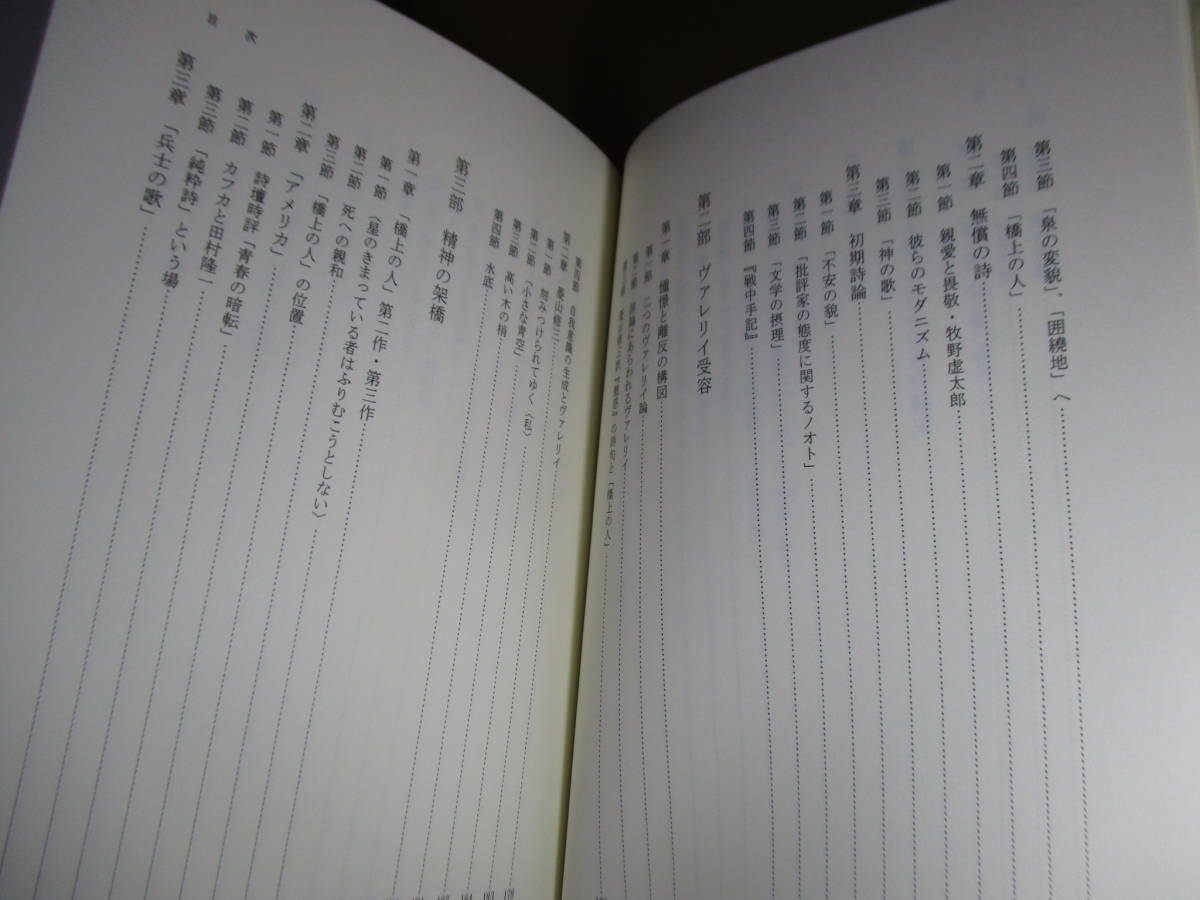 第三節　「泉の変貌」、「囲繞地」へ
第四節　「橋上の人」
第二章　無償の詩
第一節　親愛と畏敬・牧野虚太郎
第二節　彼らのモダニズム
第三節　「神の歌」
第三章　初期詩論
第一節　「不安の貌」
第二節　「批評家の態度に関するノオト」
第三節　「文学の摂理」
第四節　『戦中手記』
第二部　ヴァレリイ受容
第一章　憧憬と離反の構図
第一節　二つのヴァレリイ論
第二節　詩論にあらわれるヴァレリイ
の詩句と「橋上の人」
第四節　自我意識の生成とヴァレリイ
第二章　菱山修三
第一節　刻みつけられてゆく〈私〉
第二節　「小さな青空」
第三節　高い木の梢
第四節　水底
第三部　精神の架橋
第一章　「橋上の人」第二作・第三作
第一節　〈星のきまっている者はふりむこうとしない〉
第二節　死への親和
第三節　「橋上の人」の位置
第二章　「アメリカ」
第一節　詩壇時評「青春の暗転」
第二節　カフカと田村隆一
第三節　「純粋詩」という場
第三章　「兵士の歌」
目次
178
183
184